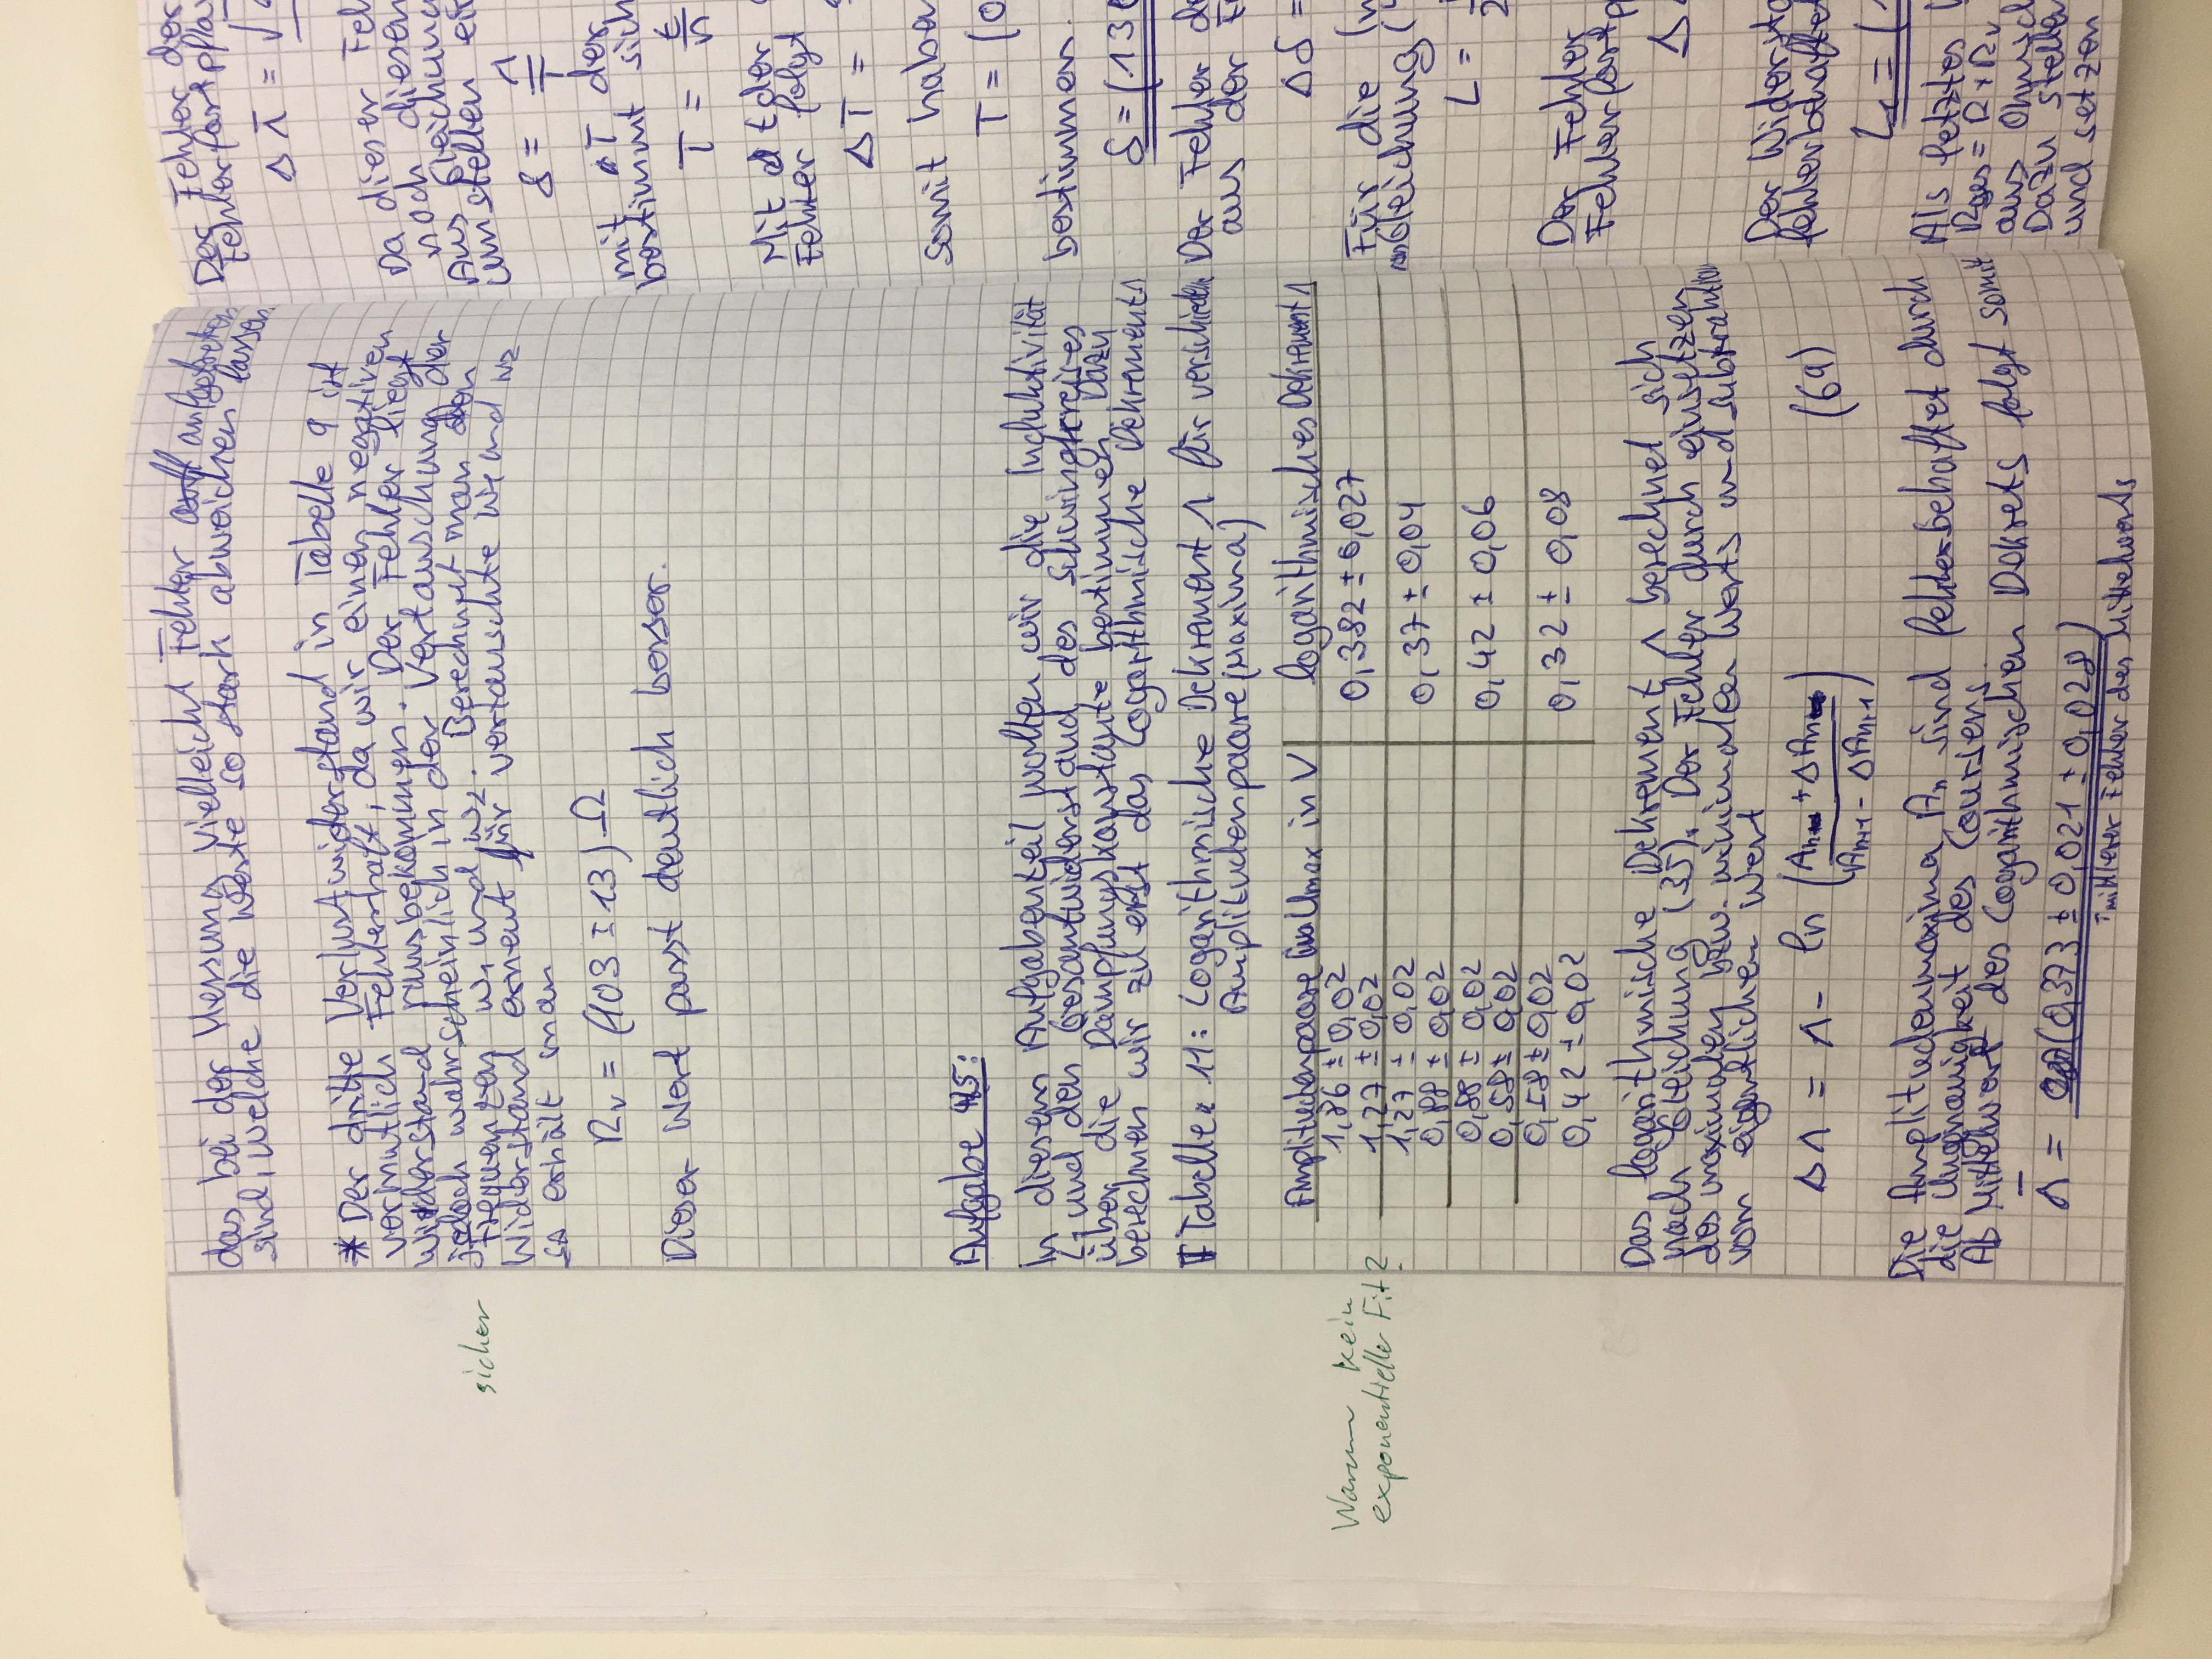 das bei der Messung vielleicht Fehler aufgetreten
sind, welche die Werte so stark abweichen lassen.
* Der dritte Verlustwiderstand in Tabelle 9 ist
vermutlich Fehlerhaft, da wir einen negativen
Widerstand rausbekommen. Der Fehler liegt
jedoch wahrscheinlich in der Vertauschung der
sicher
Frequenzen ω₁ und ω₂. Berechnet man den
Widerstand erneut für vertauschte ω₁ und ω₂
so erhält man
R_V = (403 ± 13) Ω
Dieser Wert passt deutlich besser.
Aufgabe 5:
In diesem Aufgabenteil wollen wir die Induktivität
L und den Gesamtwiderstand des Schwingkreises
über die Dämpfungskonstante bestimmen. Dazu
berechnen wir zu erst das Logarithmische Dekrement Λ
Tabelle 11: Logarithmische Dekrement Λ für verschieden
Amplitudenpaare (Maxima)
Amplitudenpaare U_max in V | logarithmisches Dekrement Λ
1,86 ± 0,02
0,382 ± 0,027
1,27 ± 0,02
Warum kein
exponentieller Fit?
1,27 ± 0,02
0,37 ± 0,04
0,88 ± 0,02
0,88 ± 0,02
0,42 ± 0,06
0,58 ± 0,02
0,58 ± 0,02
0,32 ± 0,08
0,42 ± 0,02
Das logarithmische Dekrement Λ berechnet sich
nach Gleichung (35). Der Fehler durch einsetzen
des maximalen bzw. minimalen Werts und subtraktion
vom eigentlichen Wert
ΔΛ = Λ - ln (A_n + ΔA_n / A_n+1 - ΔA_n+1) (69)
Die Amplitudenmaxima A_n sind fehlerbehaftet durch
die Ungenauigkeit des Coursers.
Als Mittelwert des Logarithmischen Dekrets folgt somit
Λ̄ = (0,373 ± 0,021 ± 0,028)
↑ mittlerer Fehler des Mittelwerts
Der Fehler der
Fehlerfortpfla
ΔΛ̄ = √
Da dieser Feh
noch diesen
Aus Gleichung
umstellen ein
δ = Λ / T
mit T der
bestimmt sich
T = t / n
Mit t der
Fehler folgt
ΔT =
Somit haben
T = (0
bestimmen.
δ = (130
Der Fehler de
aus der F
Δδ =
Für die In
Gleichung (
L =
2
Der Fehler
Fehlerfortp
Δ
Der Widersta
fehlerbehaftet
L = (1
Als letztes
R_ges = R + R_V
aus Ohmsch
Dazu stelle
und setzen